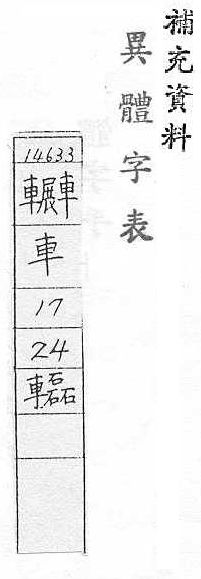 補充資料
異體字表
14633
車
17
24